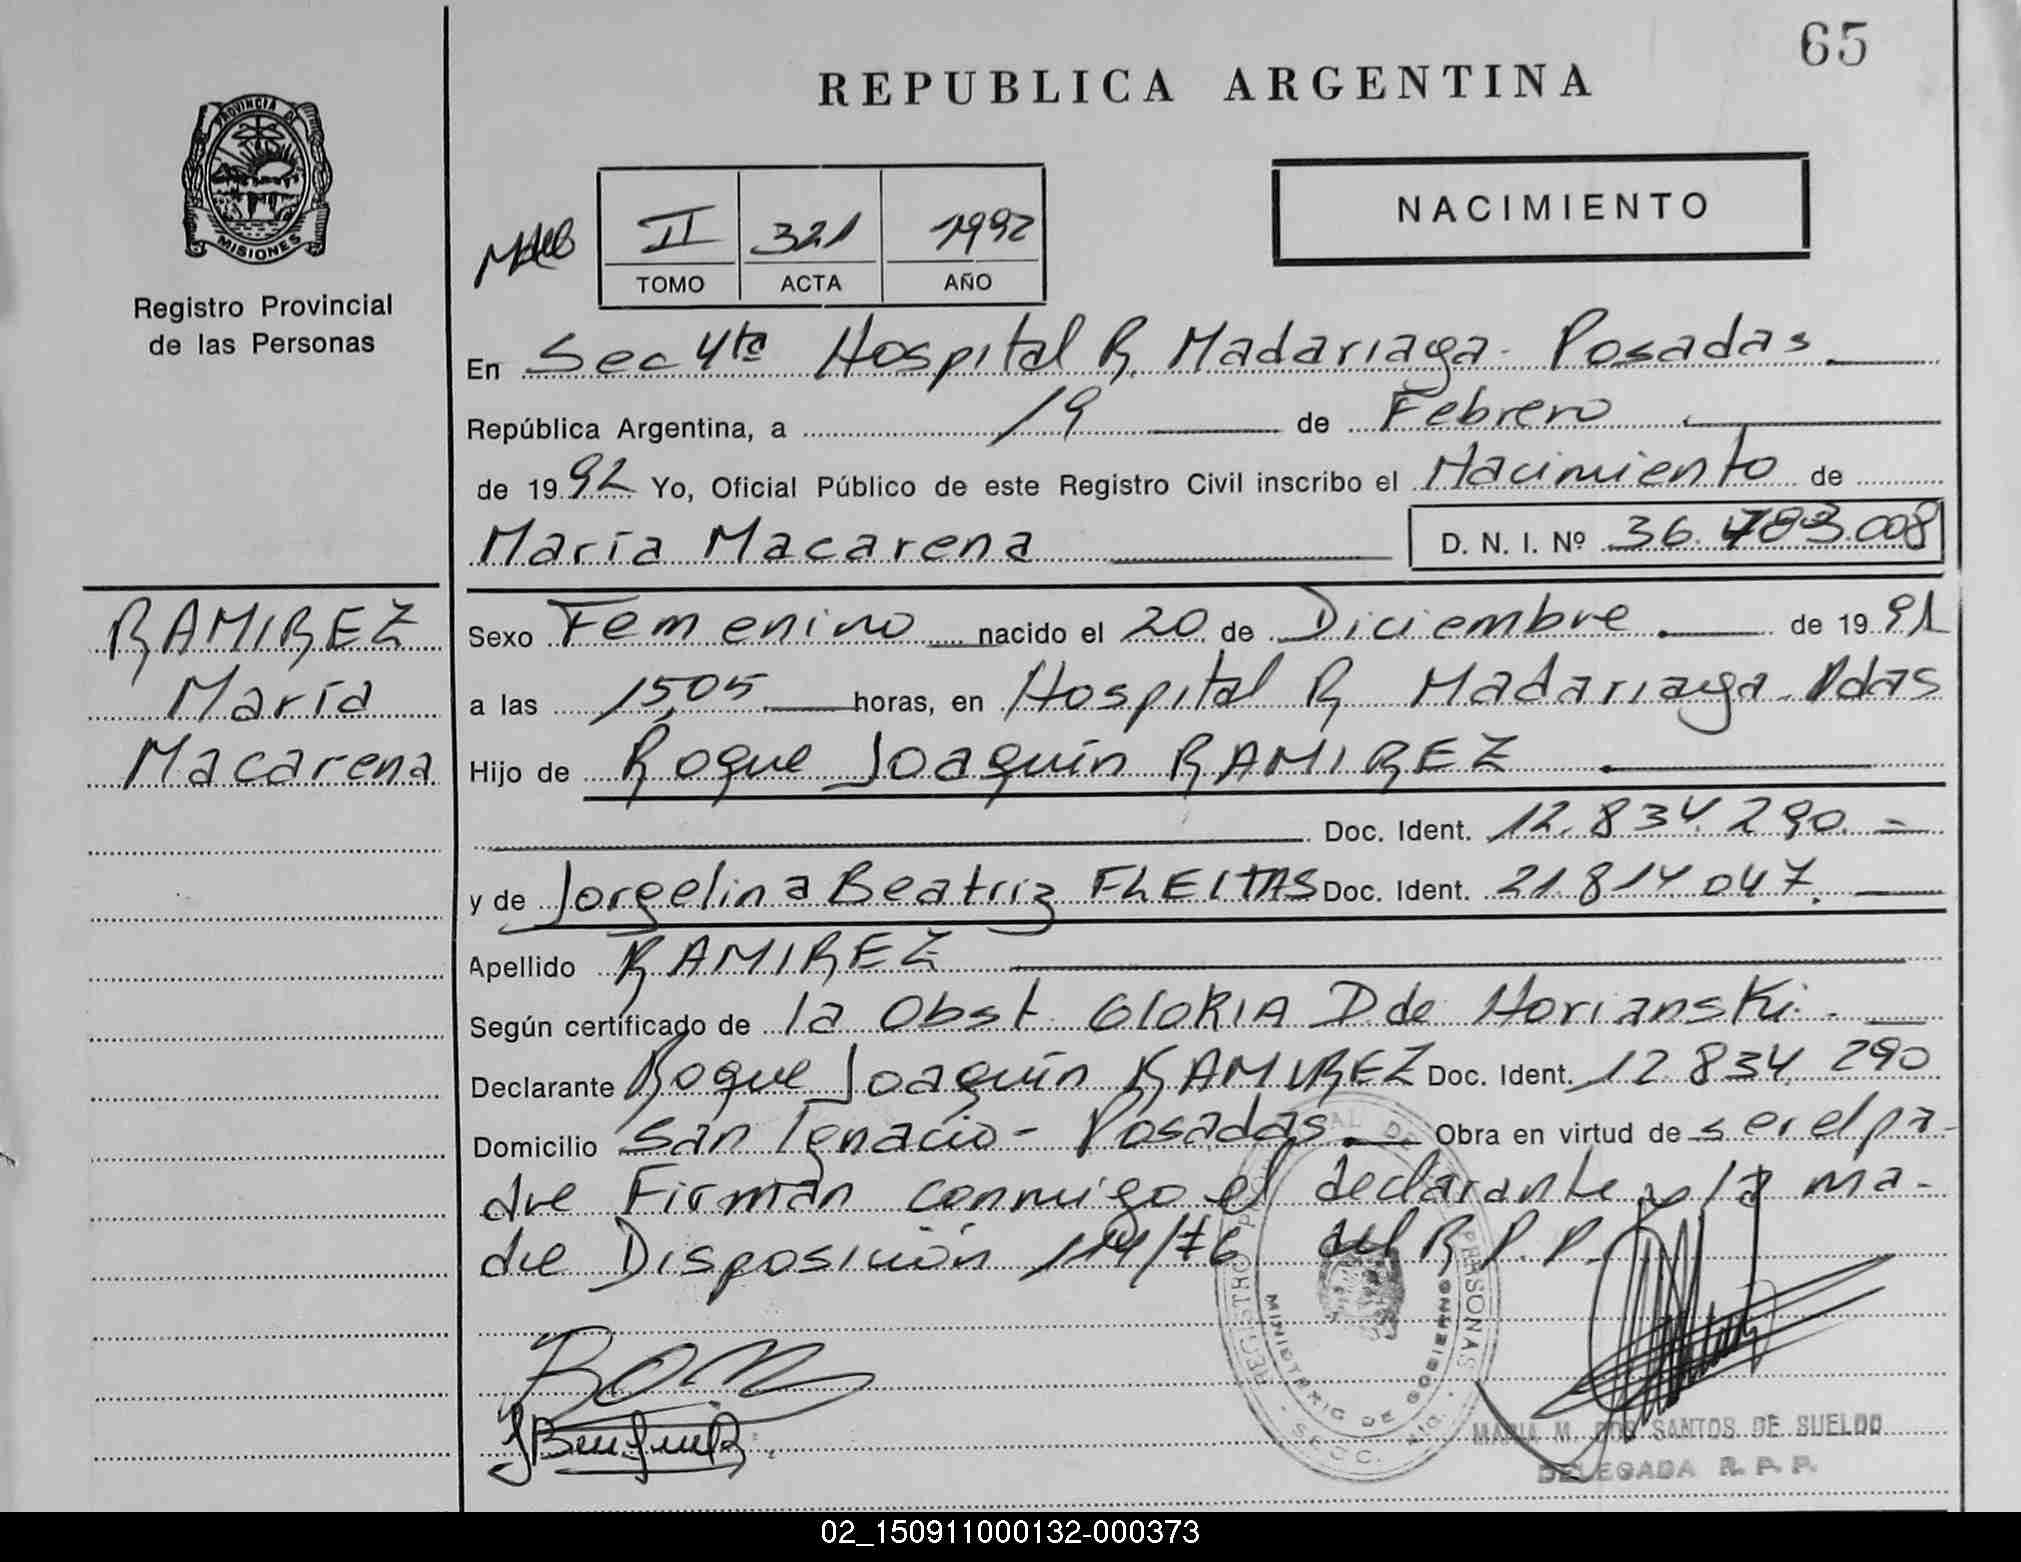 65
REPUBLICA ARGENTINA
PROVINCIA DE
MISIONES
Registro Provincial
de las Personas
II 321 1992
TOMO ACTA AÑO
NACIMIENTO
En Sec 4ta Hospital R. Madariaga - Posadas
República Argentina, a 19 de Febrero
de 1992 Yo, Oficial Público de este Registro Civil inscribo el Nacimiento de
María Macarena D. N. I. Nº 36.783.008
RAMIREZ
María
Macarena
Sexo Femenino nacido el 20 de Diciembre de 1991
a las 15,05 horas, en Hospital R. Madariaga - Pdas
Hijo de Roque Joaquín RAMIREZ
Doc. Ident. 12.834.290.-
y de Jorgelina Beatriz FLEITAS Doc. Ident. 21.814.047.
Apellido RAMIREZ
Según certificado de la Obst. GLORIA D. de Horianski.
Declarante Roque Joaquín RAMIREZ Doc. Ident. 12.834.290
Domicilio San Ignacio - Posadas. Obra en virtud de ser el pa-
dre Firman conmigo el declarante y la ma-
dre Disposición 114/76 del R.P.P.
MINISTERIO DE GOBIERNO
MARIA M. DOS SANTOS DE SUELDO
DELEGADA R. P. P.
02_150911000132-000373